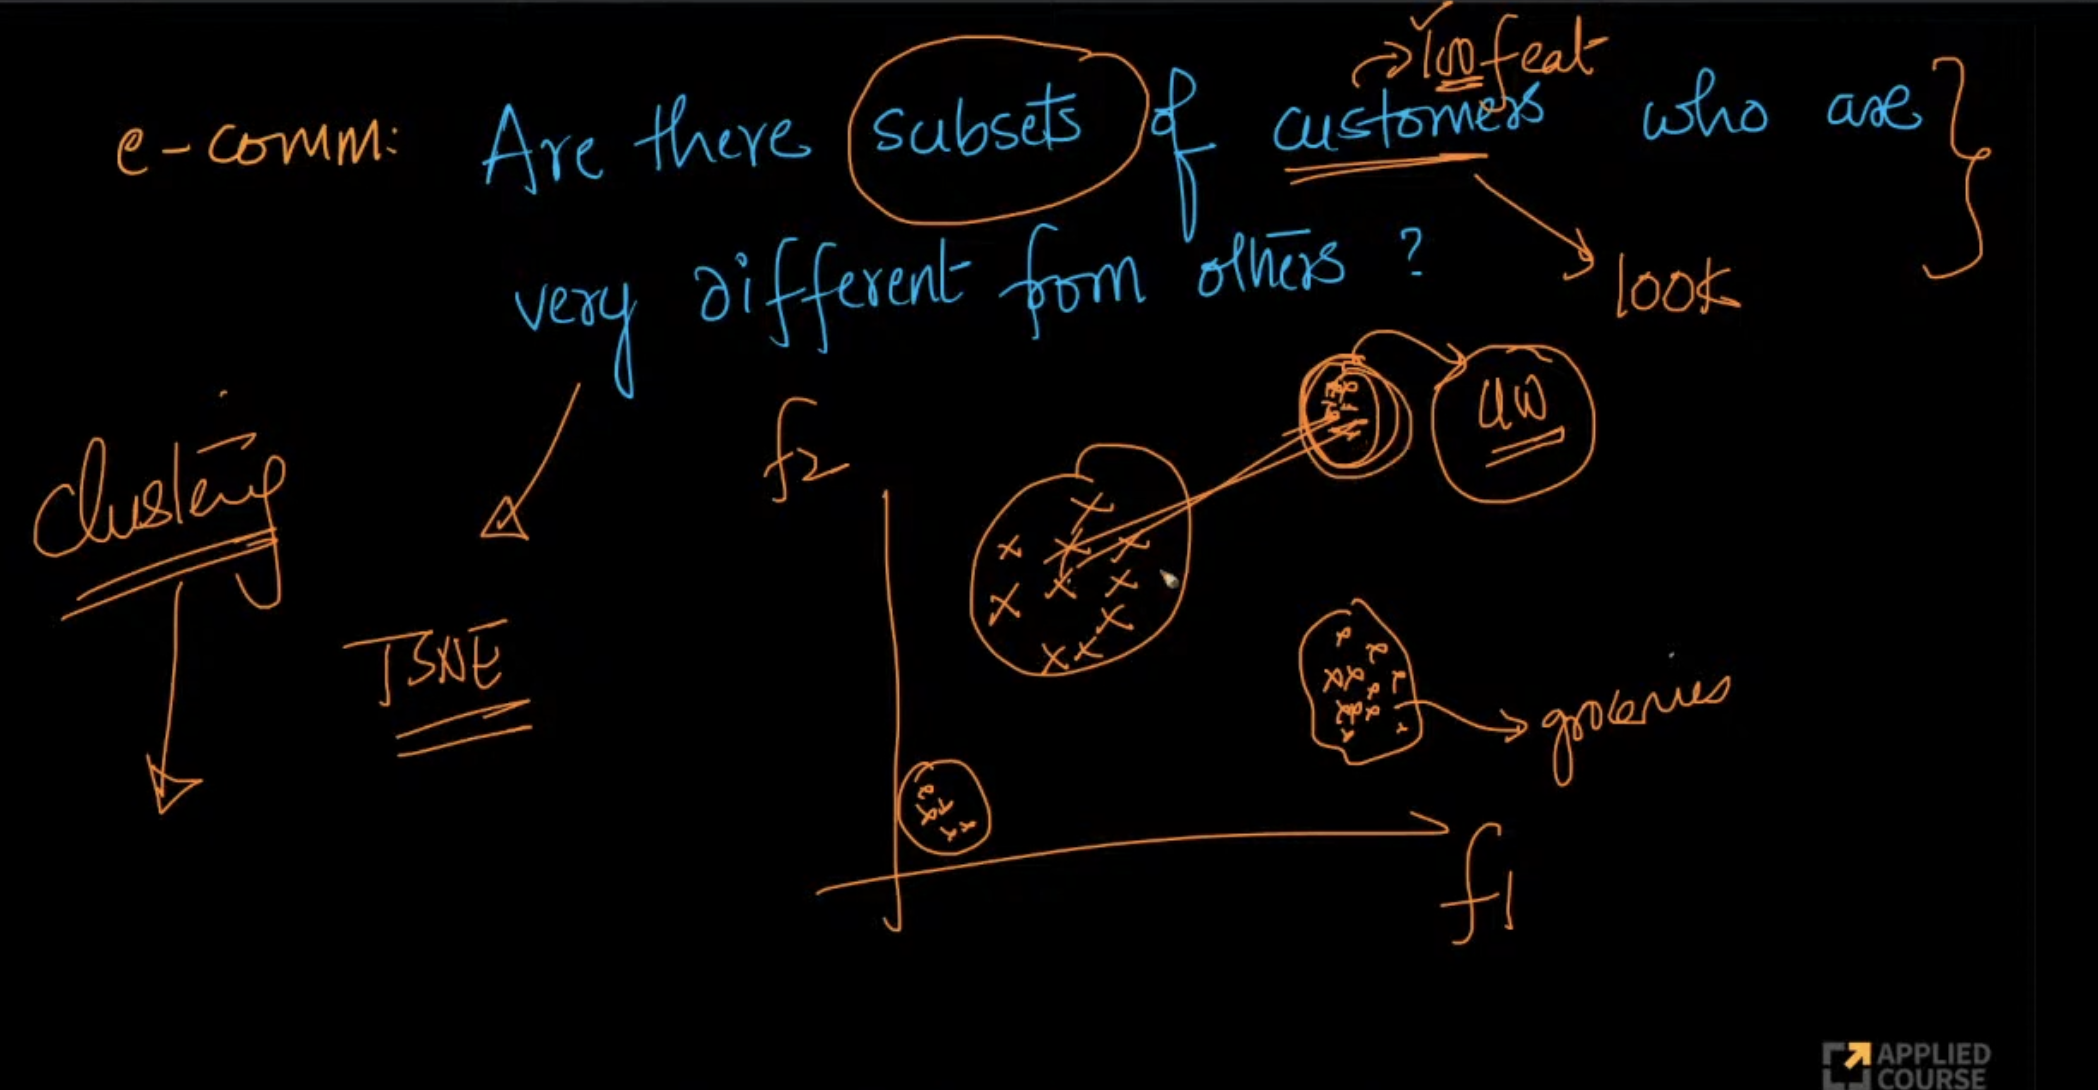 100 feat
e-comm: Are there subsets of customers who are
very different from others ?
100k
Clustering
TSNE
f2
groceries
f1
APPLIED
COURSE